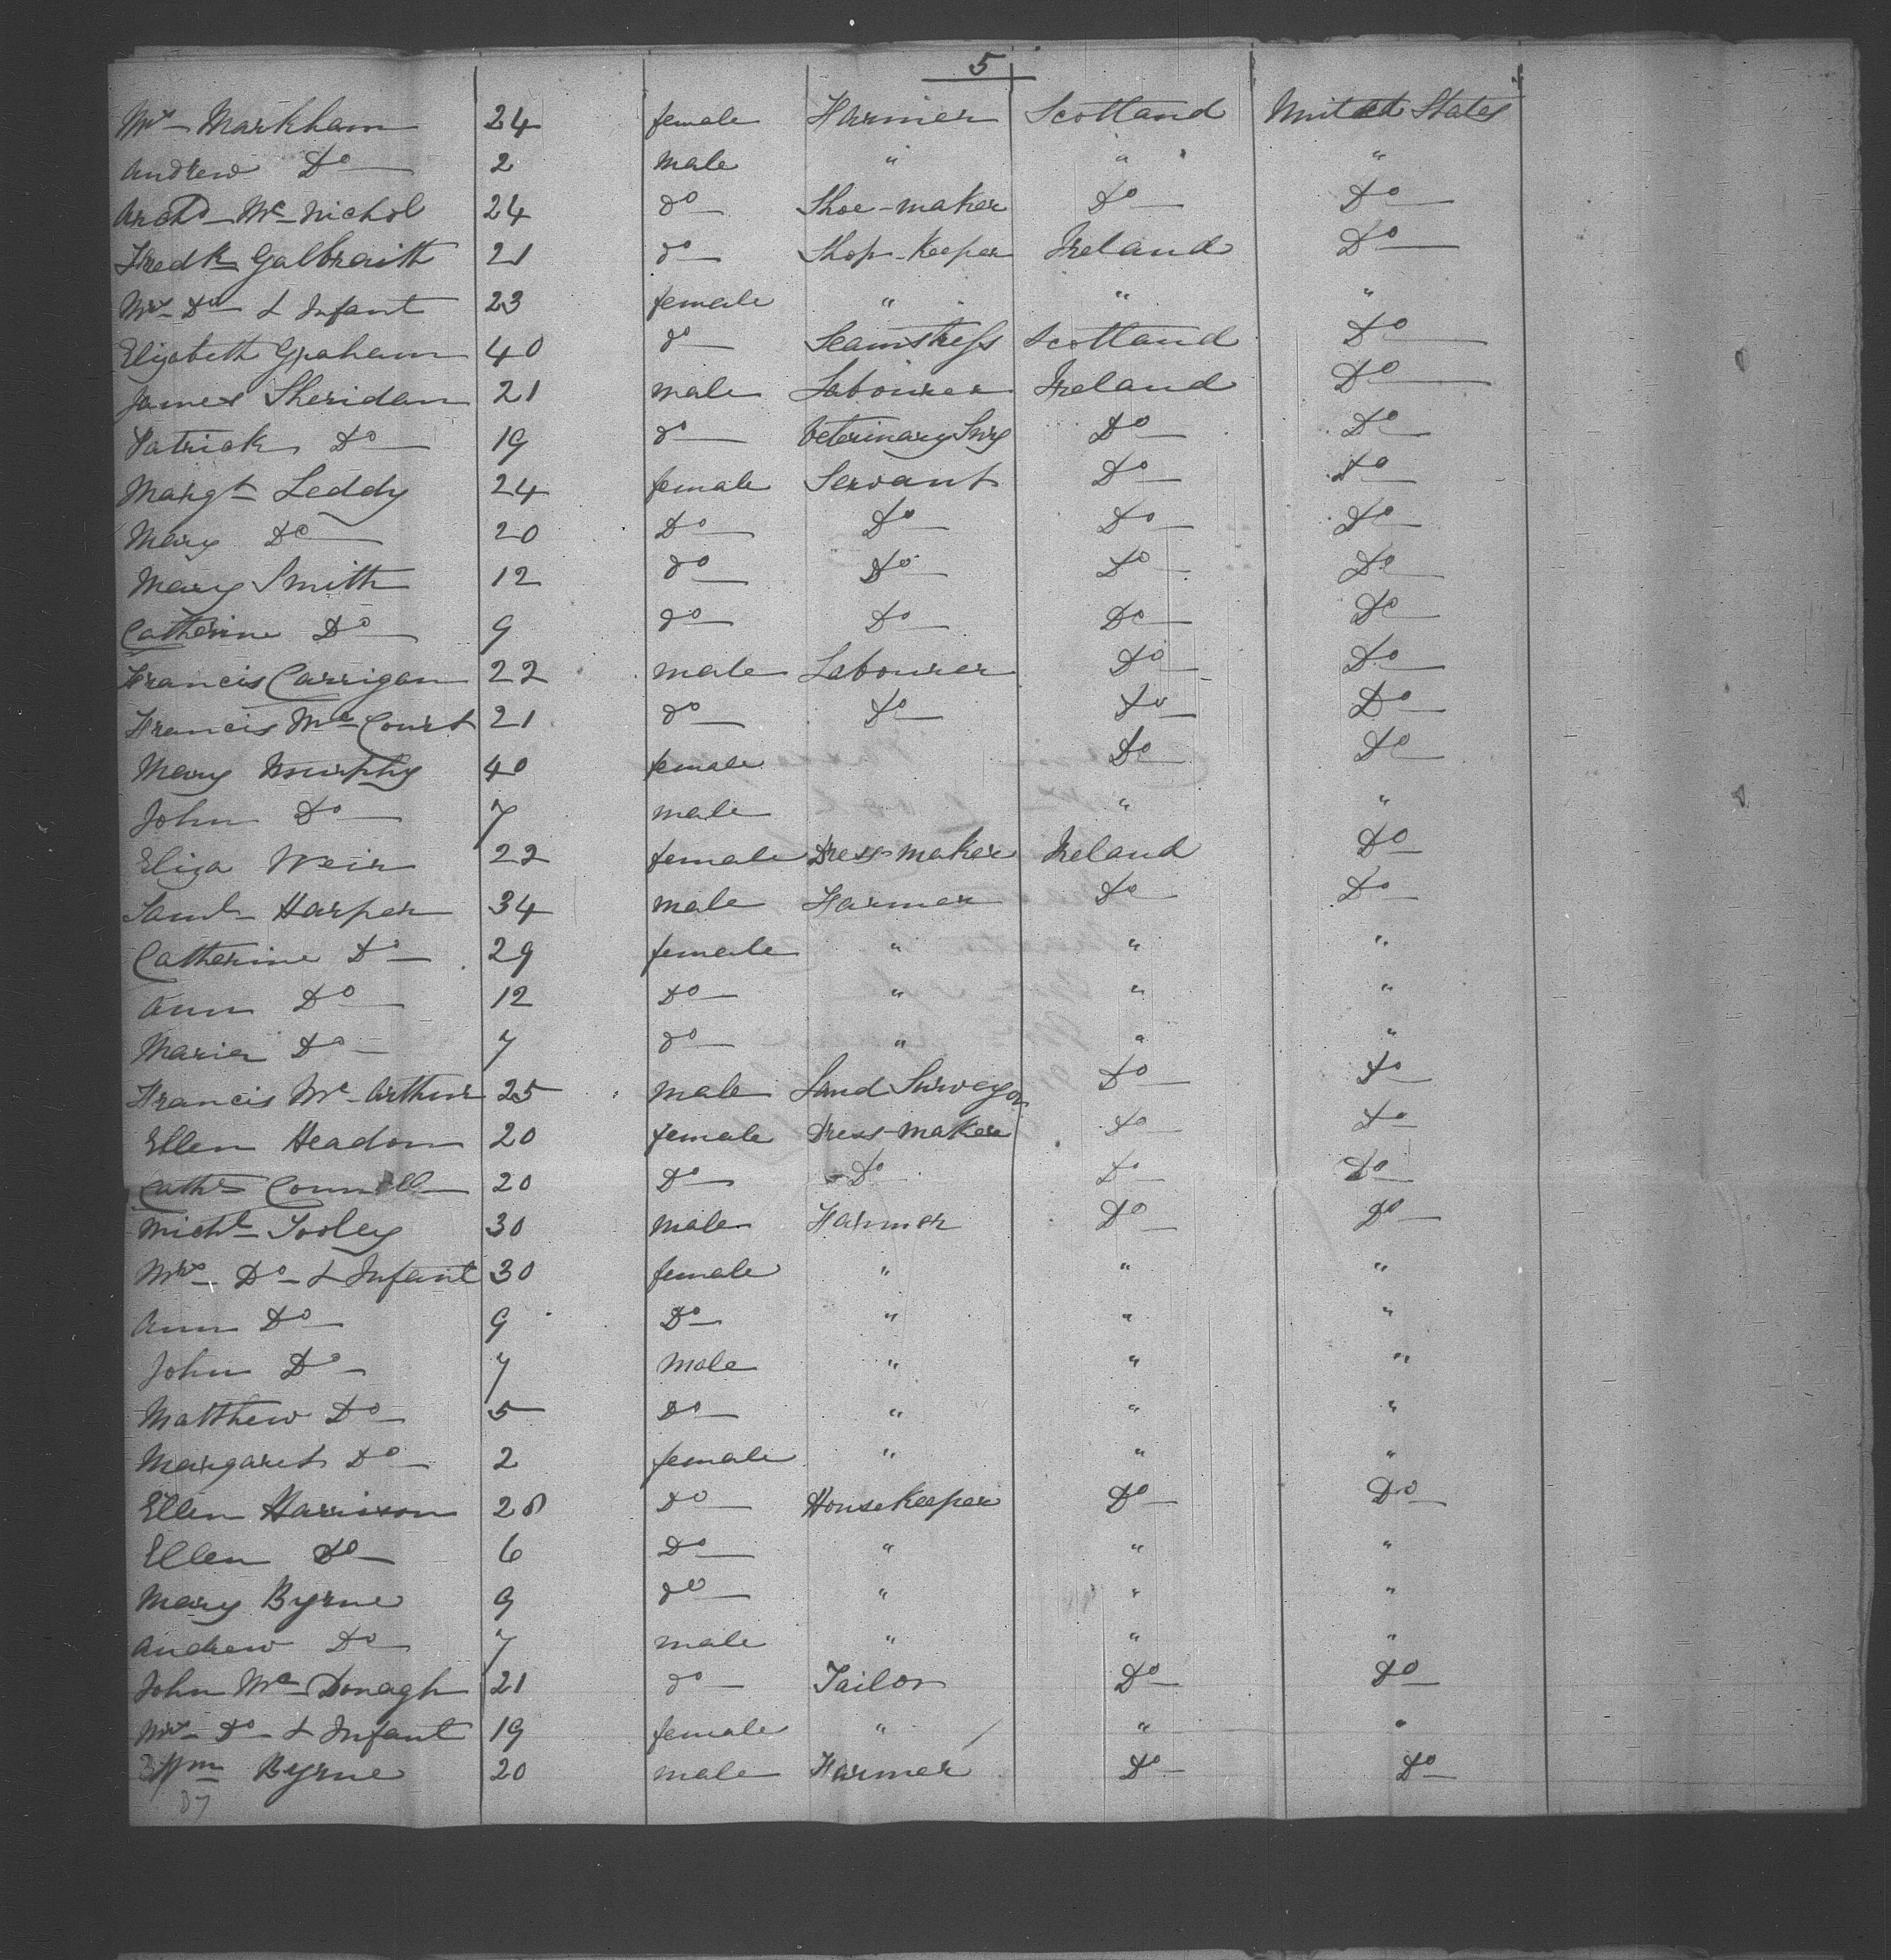 5
Mrs Markham 24 female Farmer Scotland United States
Andrew Do 2 male " " "
Archd McNichol 24 do Shoe-maker Do Do
Fredk Galbraith 21 do Shop-Keeper Ireland Do
Mrs Do & Infant 23 female " " "
Elizabeth Graham 40 do Seamstress Scotland Do
James Sheridan 21 male Labourer Ireland Do
Patrick Do 19 do Veterinary Surg Do Do
Margt Leddy 24 female Servant Do Do
Mary Do 20 Do Do Do Do
Mary Smith 12 do Do Do Do
Catherine Do 9 do Do Do Do
Francis Carrigan 22 male Labourer Do Do
Francis McCourt 21 do Do Do Do
Mary Murphy 40 female Do Do
John Do 7 male " "
Eliza Weir 22 female Dress-maker Ireland Do
Saml Harper 34 male Farmer Do Do
Catherine Do 29 female " " "
Ann Do 12 Do " " "
Maria Do 7 do " " "
Francis McArthur 25 male Land Surveyor Do Do
Ellen Headon 20 female Dress-maker Do Do
Cathe Connell 20 Do Do Do Do
Michl Tooley 30 male Farmer Do Do
Mrs Do & Infant 30 female " " "
Ann Do 9 Do " " "
John Do 7 Male " " "
Matthew Do 5 Do " " "
Margaret Do 2 female " " "
Ellen Harrison 28 Do Housekeeper Do Do
Ellen Do 6 Do " " "
Mary Byrne 9 do " " "
Andrew Do 7 male " " "
John McDonagh 21 do Tailor Do Do
Mrs Do & Infant 19 female " " "
Wm Byrne 20 male Farmer Do Do
37